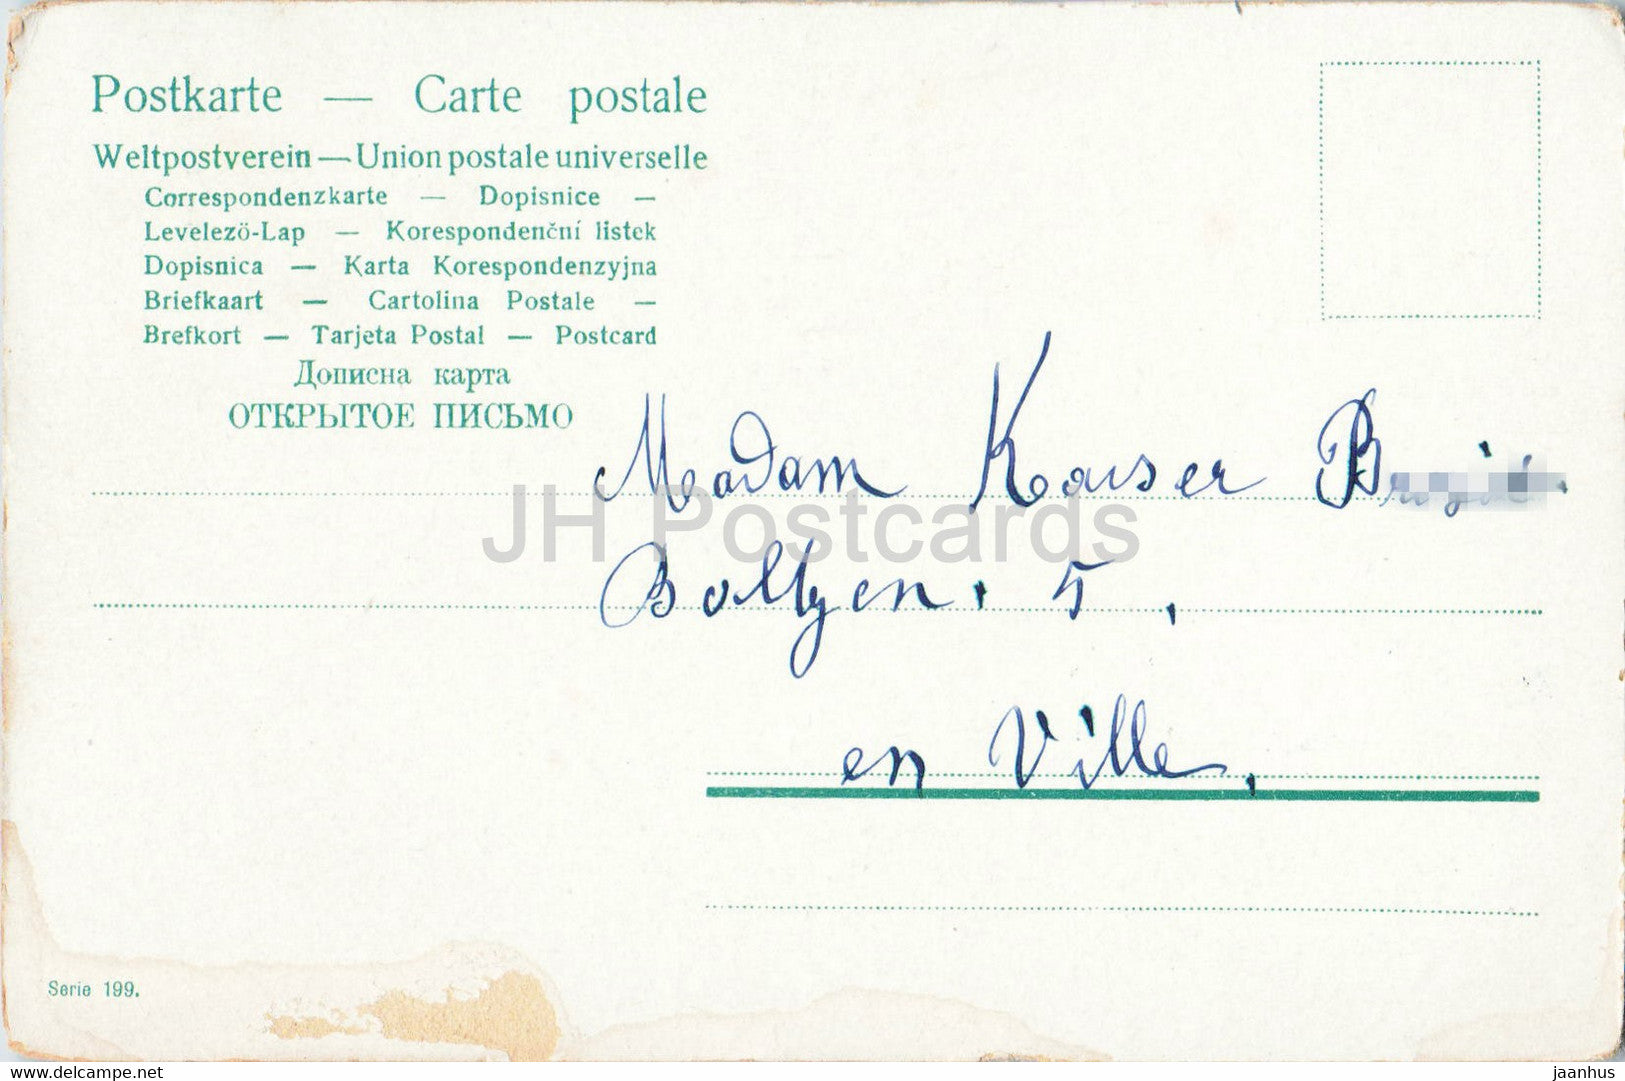 Postkarte — Carte postale
Weltpostverein — Union postale universelle
Correspondenzkarte — Dopisnice —
Levelezö-Lap — Korespondenční listek
Dopisnica — Karta Korespondenzyjna
Briefkaart — Cartolina Postale —
Brefkort — Tarjeta Postal — Postcard
Дописна карта
ОТКРЫТОЕ ПИСЬМО
Madam Kaiser
JH Postcards
5,
en Ville,
Serie 199.
delcampe.net
jaanhus